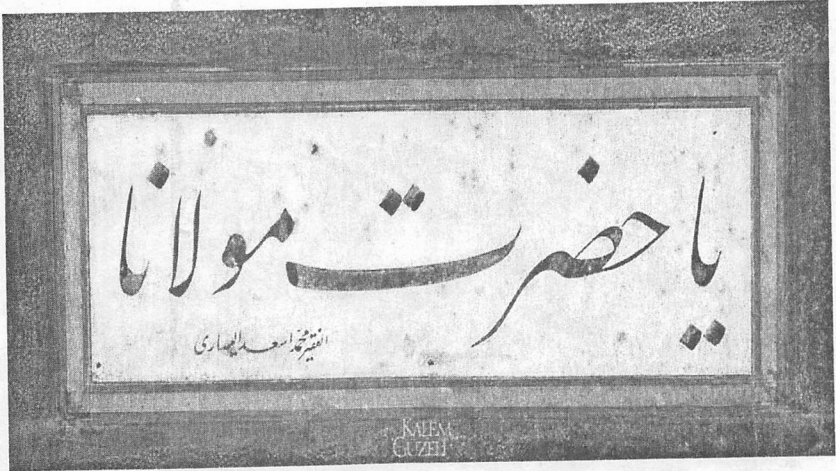 يا حضرت مولانا
الفقير محمد اسعد اليسارى
KALEM
GUZELI